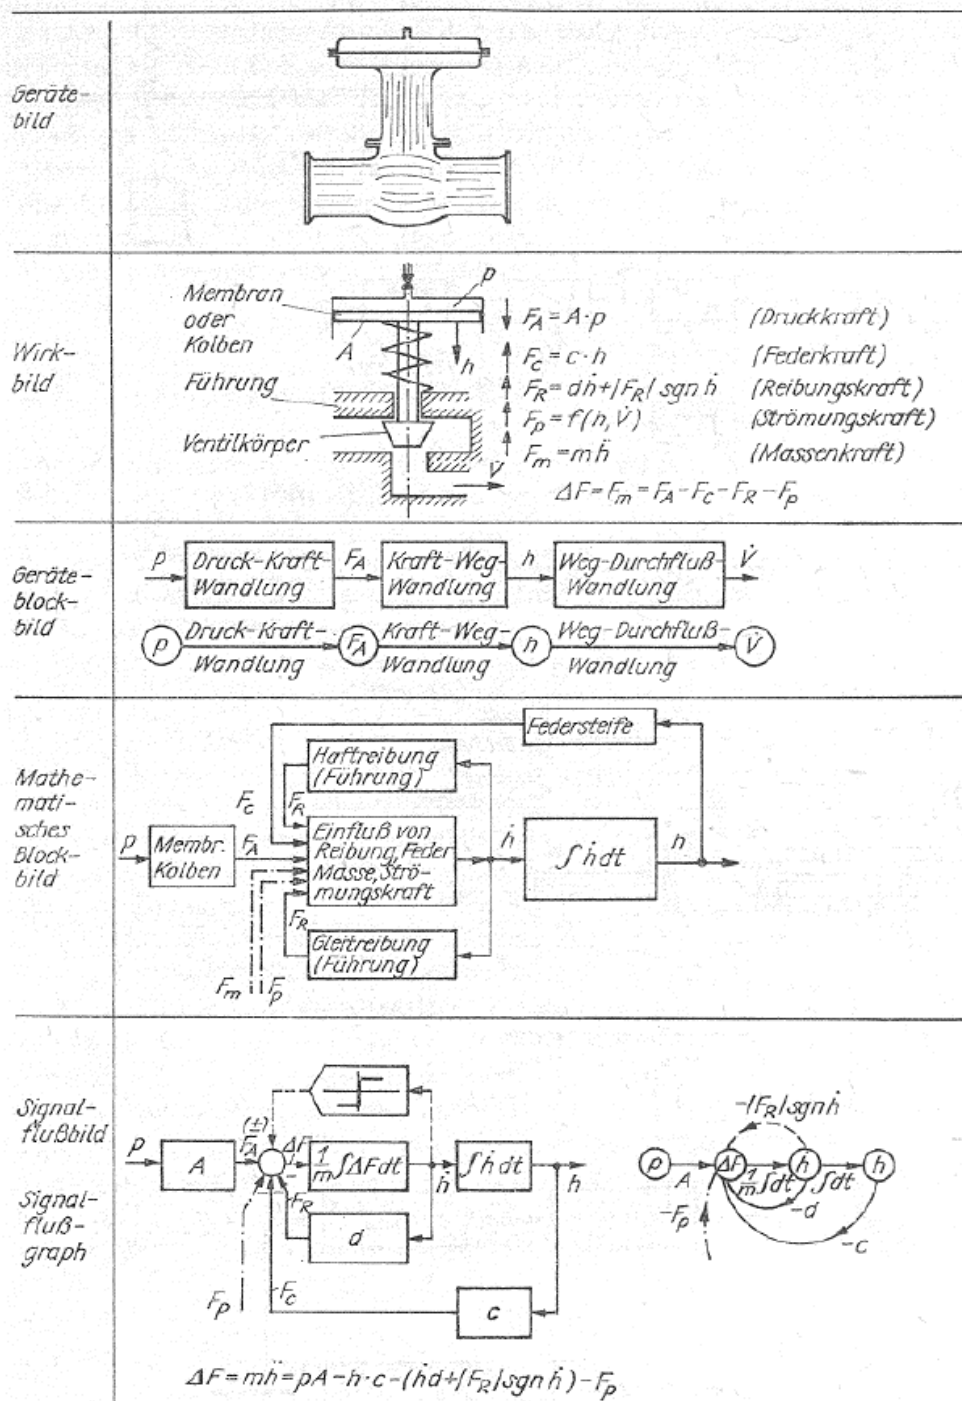 Geräte-
bild
Wirk-
bild
Membran
oder
Kolben
A
Führung
Ventilkörper
p
h
V̇
F_A = A·p (Druckkraft)
F_c = c·h (Federkraft)
F_R = dḣ+|F_R| sgn ḣ (Reibungskraft)
F_p = f(h, V̇) (Strömungskraft)
F_m = mḧ (Massenkraft)
ΔF = F_m = F_A – F_c – F_R – F_p
Geräte-
block-
bild
p
Druck-Kraft-
Wandlung
F_A
Kraft-Weg-
Wandlung
h
Weg-Durchfluß-
Wandlung
V̇
p
Druck-Kraft-
Wandlung
F_A
Kraft-Weg-
Wandlung
h
Weg-Durchfluß-
Wandlung
V̇
Mathe-
mati-
sches
Block-
bild
Federsteife
Haftreibung
(Führung)
F_c
F_R
p
Membr.
Kolben
F_A
Einfluß von
Reibung, Feder
Masse, Strö-
mungskraft
ḣ
∫ḣdt
h
F_R
Gleitreibung
(Führung)
F_m
F_p
Signal-
flußbild
Signal-
fluß-
graph
(±)
p
A
F_A
ΔF
1/m ∫ΔFdt
ḣ
∫ḣdt
h
–
F_R
d
F_p
-F_c
c
-|F_R| sgn ḣ
p
A
ΔF
1/m ∫dt
ḣ
∫dt
h
-d
-F_p
-c
ΔF = mḧ = pA – h·c – (ḣd+|F_R| sgn ḣ) – F_p